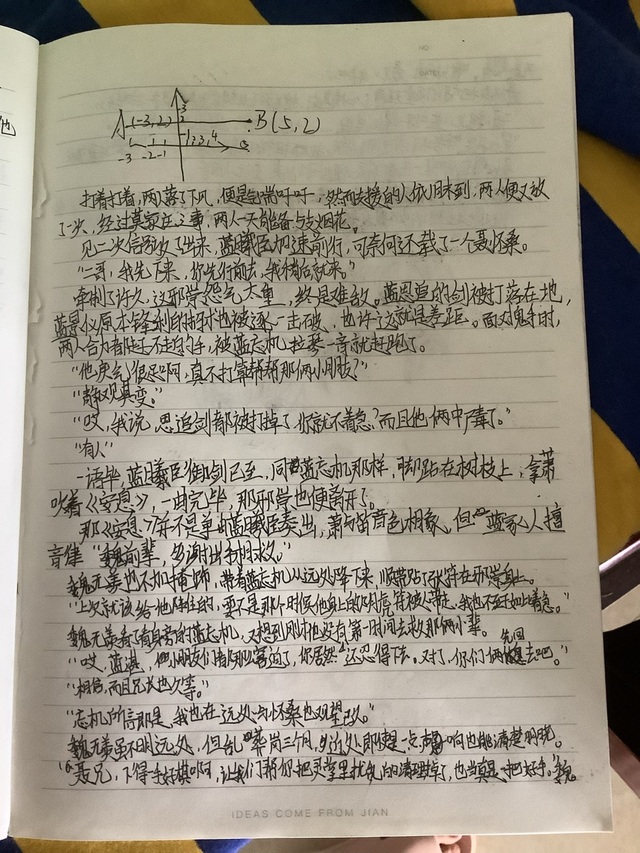 也
3
2
A(-3,2)
B(5,2)
1 2 3 4
-3 -2 -1
打着打着,两人落了下风,便是气喘吁吁,然而去援的人依旧未到,两人便又放
了一次,经过莫家庄之事,两人一天前备 烟花。
见二次信号放了出来,蓝曦臣加速前行,可奈何还载了一个聂怀桑。
“二哥,我先下来,你先行前去,我稍后就来。”
牵制了许久,这邪祟怨气太重,终是难敌。蓝思追的剑被打落在地,
蓝景仪原本锋利的 也被逐一击破,也许这就是差距。面对鬼手时,
两人合力都 不住的手,被蓝忘机拉琴一音就赶跑了。
“他戾气很足啊,真不打算帮帮那俩小朋友?”
“静观其变。”
“哎,我说,思追剑都被打掉了,你就不着急?而且他俩中毒了。”
“有人”
一语毕,蓝曦臣御剑已至,同 蓝忘机那样,脚踮在树枝上,拿萧
吹着《安息》,一曲完毕,那邪祟也便离开了。
那《安息》并不是单由蓝曦臣奏出,萧与笛音色相象,但 蓝家人擅
音律 “魏前辈,多谢出手相救。”
魏无羡也不加掩饰,带着蓝忘机从远处降下来,顺带贴了张符在邪祟身上。
“上次就该给他降住的,要不是那个时候他身上的阴虎符被带走,我也不至如此着急。”
魏无羡看了看身旁的蓝忘机,又想到刚才也没有第一时间去救那俩小辈。
“哎,蓝湛,他小朋友们都那么窘迫了,你居然 还忍得下去。对了,你们俩 先回去吧。”
“相信,而且兄长也久等。”
“忘机所言那是,我也在远处与怀桑也观望已久。”
魏无羡虽不明远处,但乱葬岗三个月,多近处即便是一点声响也能清楚明晓。
“聂兄,下得一手好棋啊,让我们帮你把灵堂里扰乱的清理掉了,也当真是一把好手。”魏
IDEAS COME FROM JIAN